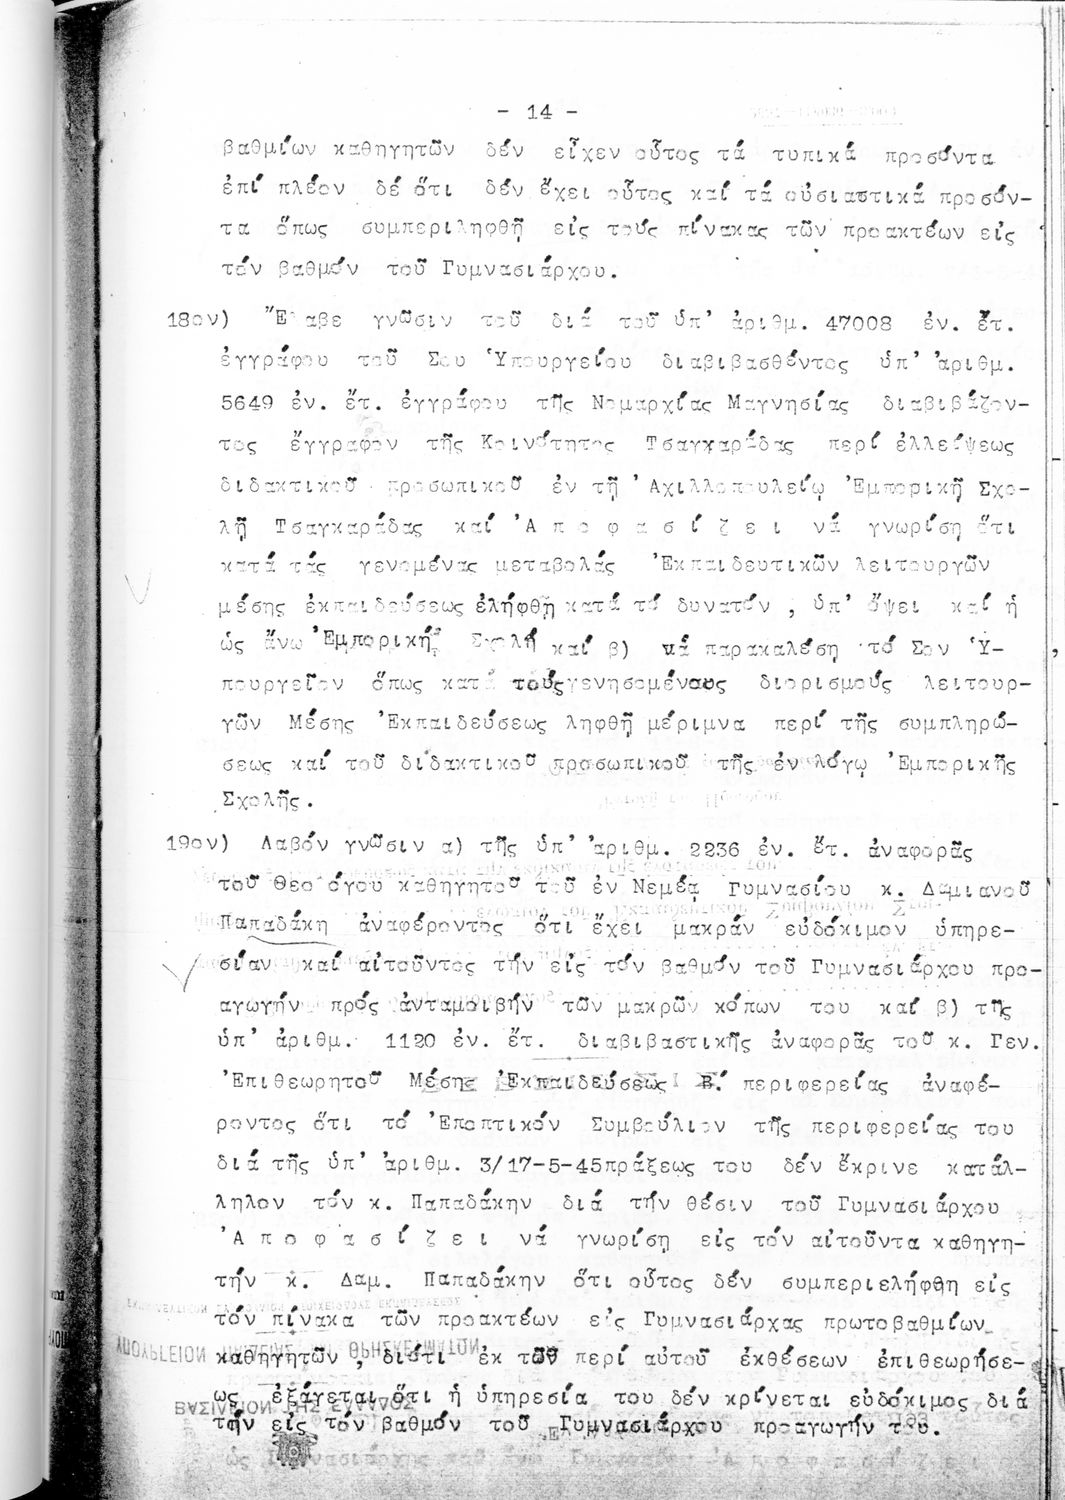 - 14 -
βαθμίων καθηγητῶν δέν εἶχεν οὗτος τά τυπικά προσόντα
ἐπί πλέον δέ ὅτι δέν ἔχει οὗτος καί τά οὐσιαστικά προσόν-
τα ὅπως συμπεριληφθῇ εἰς τούς πίνακας τῶν προακτέων εἰς
τόν βαθμόν τοῦ Γυμνασιάρχου.
18ον) Ἔλαβε γνῶσιν τοῦ διά τοῦ ὑπ' ἀριθμ. 47008 ἐν. ἔτ.
ἐγγράφου τοῦ Σου Ὑπουργείου διαβιβασθέντος ὑπ' ἀριθμ.
5649 ἐν. ἔτ. ἐγγράφου τῆς Νομαρχίας Μαγνησίας διαβιβάζον-
τος ἔγγραφον τῆς Κοινότητος Τσαγκαράδας περί ἐλλείψεως
διδακτικοῦ προσωπικοῦ ἐν τῇ Ἀχιλλοπουλείῳ Ἐμπορικῇ Σχο-
λῇ Τσαγκαράδας καί Ἀ π ο φ α σ ί ζ ε ι νά γνωρίσῃ ὅτι
κατά τάς γενομένας μεταβολάς Ἐκπαιδευτικῶν λειτουργῶν
μέσης ἐκπαιδεύσεως ἐλήφθη κατά τό δυνατόν , ὑπ' ὄψει καί ἡ
ὡς ἄνω Ἐμπορική Σχολή καί β) νά παρακαλέσῃ τό Σον Ὑ-
πουργεῖον ὅπως κατά τούς γενησομένους διορισμούς λειτουρ-
γῶν Μέσης Ἐκπαιδεύσεως ληφθῇ μέριμνα περί τῆς συμπληρώ-
σεως καί τοῦ διδακτικοῦ προσωπικοῦ τῆς ἐν λόγῳ Ἐμπορικῆς
Σχολῆς.
19ον) Λαβόν γνῶσιν α) τῆς ὑπ' ἀριθμ. 2236 ἐν. ἔτ. ἀναφορᾶς
τοῦ Θεολόγου καθηγητοῦ τοῦ ἐν Νεμέᾳ Γυμνασίου κ. Δαμιανοῦ
Παπαδάκη ἀναφέροντος ὅτι ἔχει μακράν εὐδόκιμον ὑπηρε-
σίαν καί αἰτοῦντος τήν εἰς τόν βαθμόν τοῦ Γυμνασιάρχου προ-
αγωγήν πρός ἀνταμοιβήν τῶν μακρῶν κόπων του καί β) τῆς
ὑπ' ἀριθμ. 1120 ἐν. ἔτ. διαβιβαστικῆς ἀναφορᾶς τοῦ κ. Γεν.
Ἐπιθεωρητοῦ Μέσης Ἐκπαιδεύσεως Β΄ περιφερείας ἀναφέ-
ροντος ὅτι τό Ἐποπτικόν Συμβούλιον τῆς περιφερείας του
διά τῆς ὑπ' ἀριθμ. 3/17-5-45πράξεως του δέν ἔκρινε κατάλ-
ληλον τόν κ. Παπαδάκην διά τήν θέσιν τοῦ Γυμνασιάρχου
Ἀ π ο φ α σ ί ζ ε ι νά γνωρίσῃ εἰς τόν αἰτοῦντα καθηγη-
τήν κ. Δαμ. Παπαδάκην ὅτι οὗτος δέν συμπεριελήφθη εἰς
τόν πίνακα τῶν προακτέων εἰς Γυμνασιάρχας πρωτοβαθμίων
καθηγητῶν , διότι ἐκ τῶν περί αὐτοῦ ἐκθέσεων ἐπιθεωρήσε-
ως ἐξάγεται ὅτι ἡ ὑπηρεσία του δέν κρίνεται εὐδόκιμος διά
τήν εἰς τόν βαθμόν τοῦ Γυμνασιάρχου προαγωγήν του.